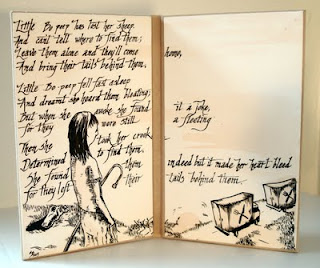 Little Bo peep has lost her sheep
And can't tell where to find them;
Leave them alone and they'll come
home,
And bring their tails behind them.
Little Bo peep fell fast asleep
And dreamt she heard them bleating;
But when she awoke she found
it a joke,
for they were still a fleeting
Then she took her crook
Determined to find them.
She found them indeed but it made her heart bleed
for they left their tails behind them.